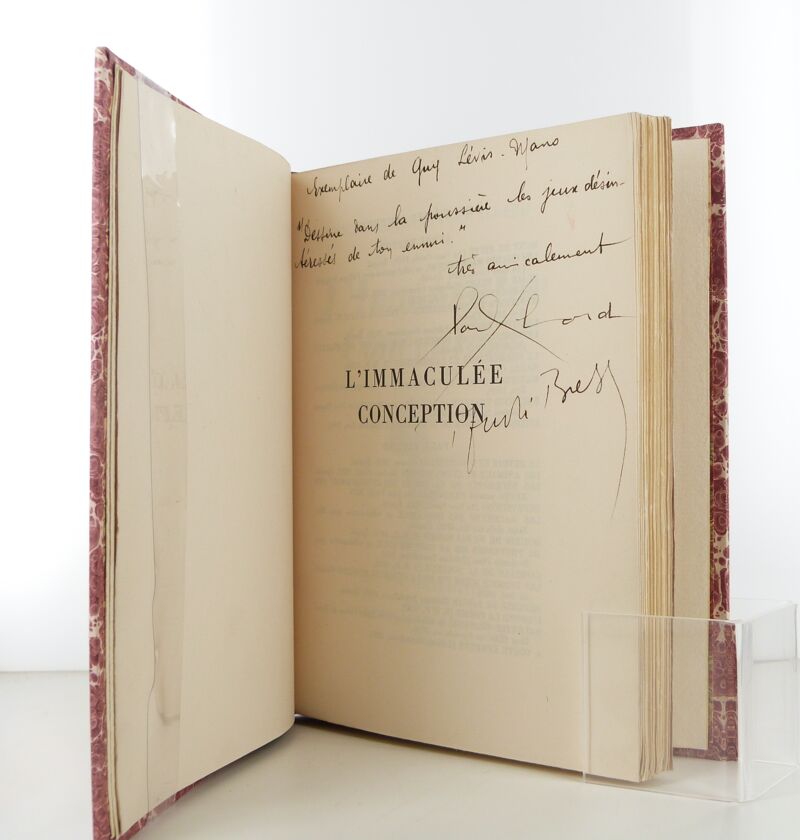 Exemplaire de Guy Lévis-Mano
"Dessine dans la poussière les jeux désin-
téressés de ton ennui."
très amicalement
Paul Eluard
L'IMMACULÉE
CONCEPTION
André Breton